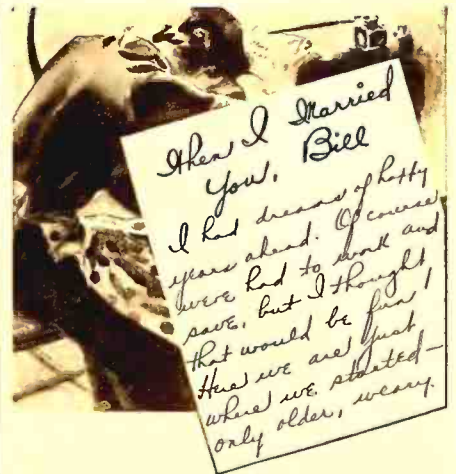 When I Married
You, Bill
I had dreams of happy
years ahead. Of course
we've had to work and
save, but I thought
that would be fun!
Here we are just
where we started—
only older, weary.